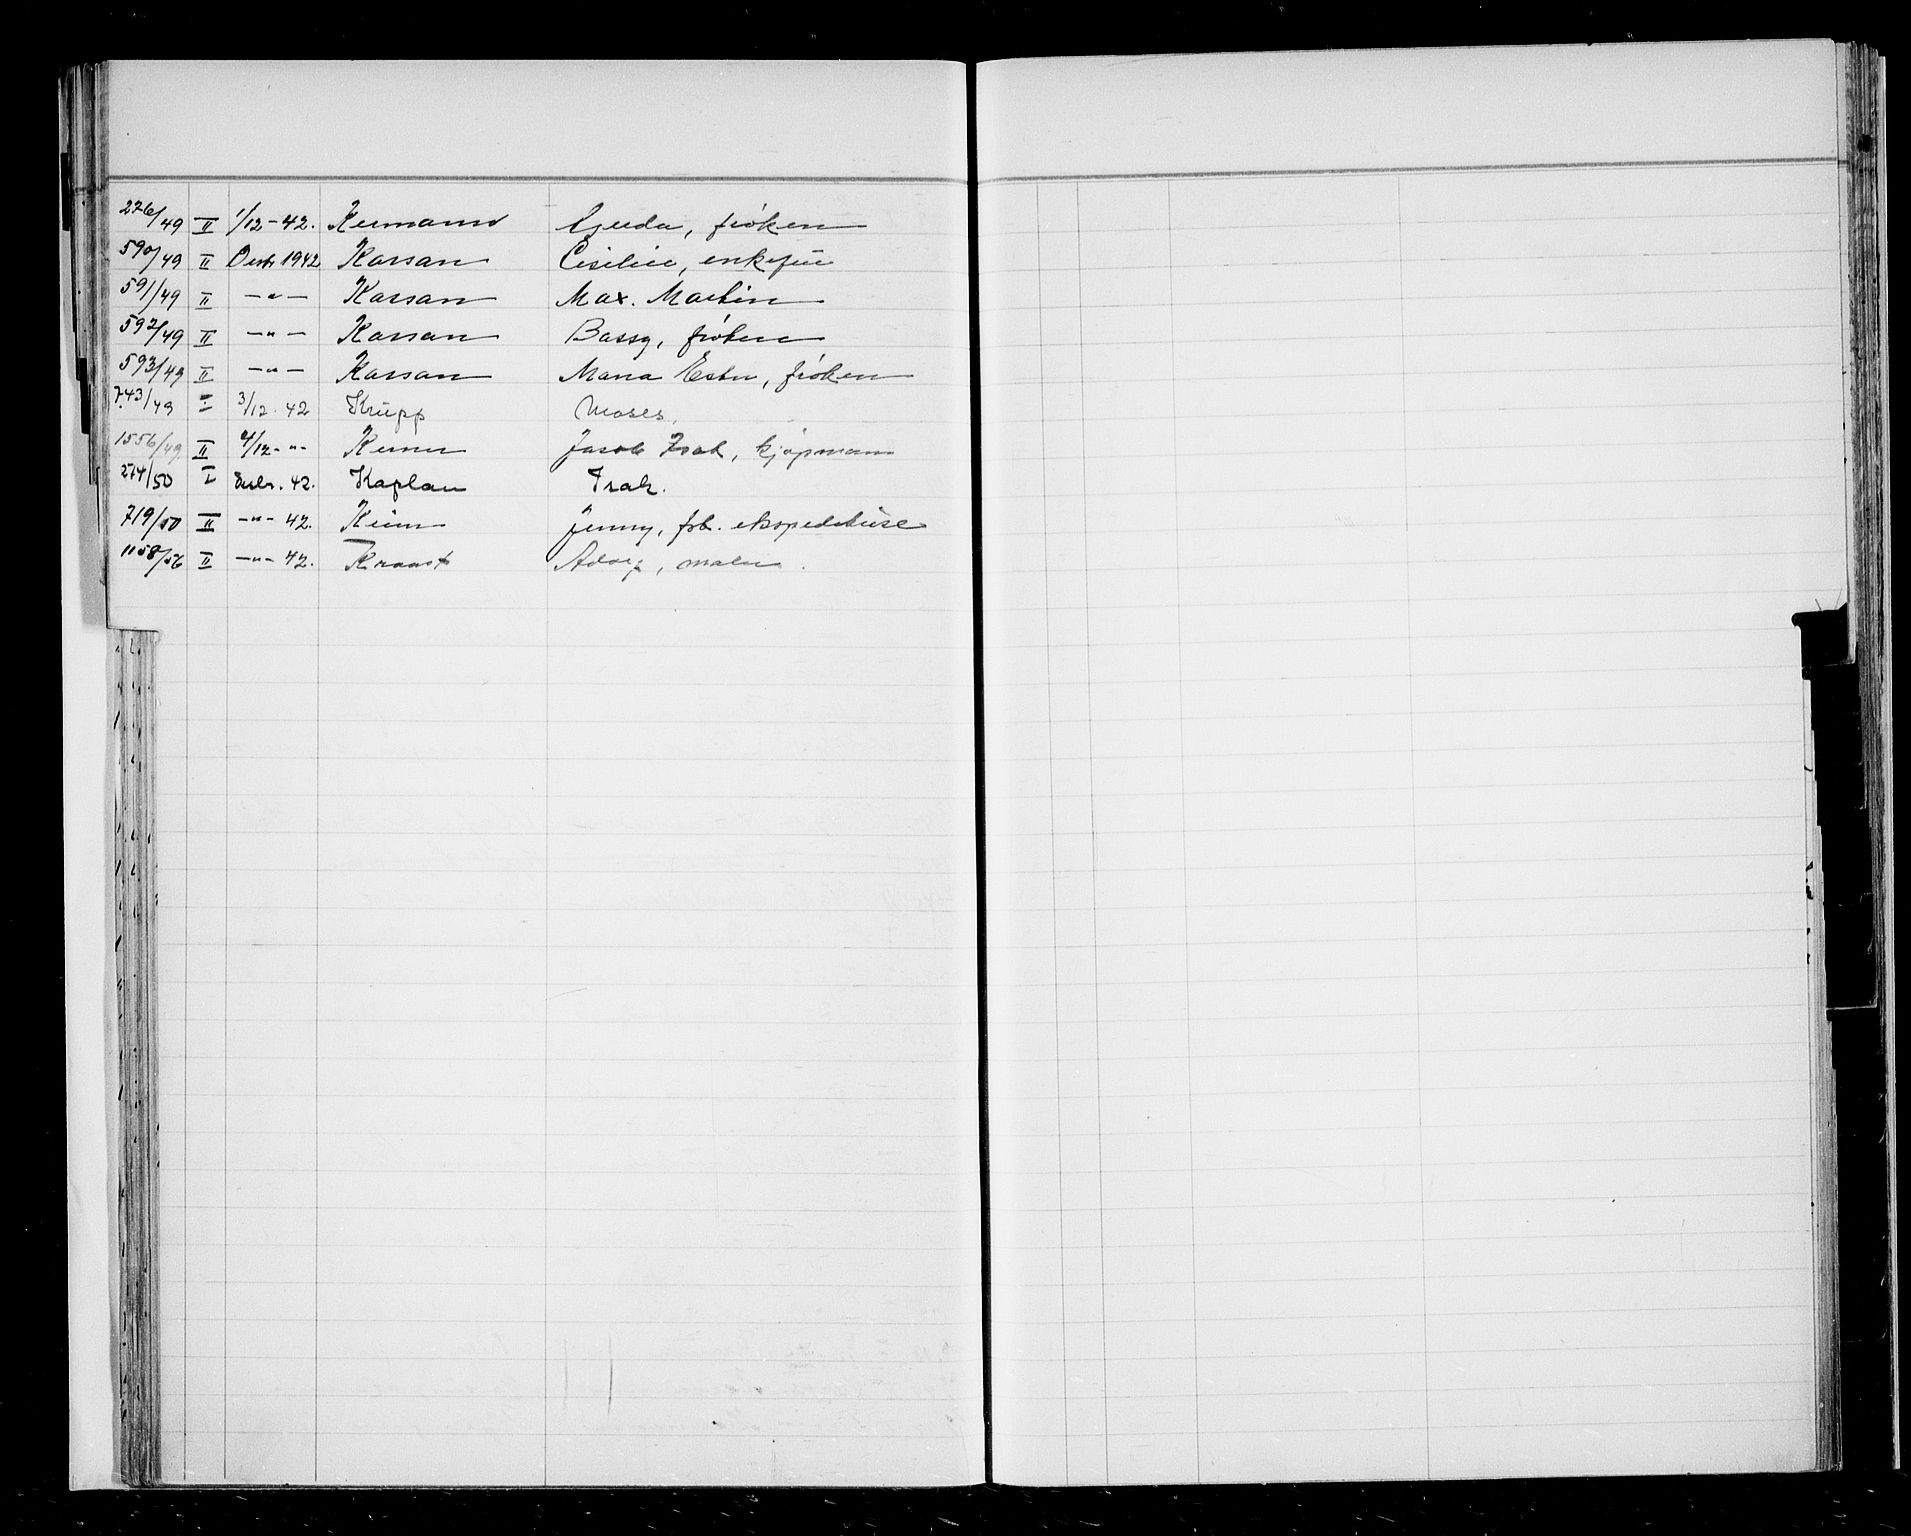 226/49 II 1/12-42. Kermann Gerda, frøken
590/49 II Desbr 1942 Kassan Cecilie, enkefru
591/49 II -"- Kassan Max. Martin
592/49 II -"- Kassan Bassy, frøken
593/49 II -"- Kassan Maria Ester, frøken
743/49 I 3/12. 42 Krupp Moses.
1556/49 II 4/12-"- Kerner Jacob Isak, kjøpmann
274/50 I Desbr. 42. Kaplan Isak.
719/50 II -"- 42. Keim Jenny, frk. ekspeditrise
1158/56 II -"- 42. Adolf, maler.